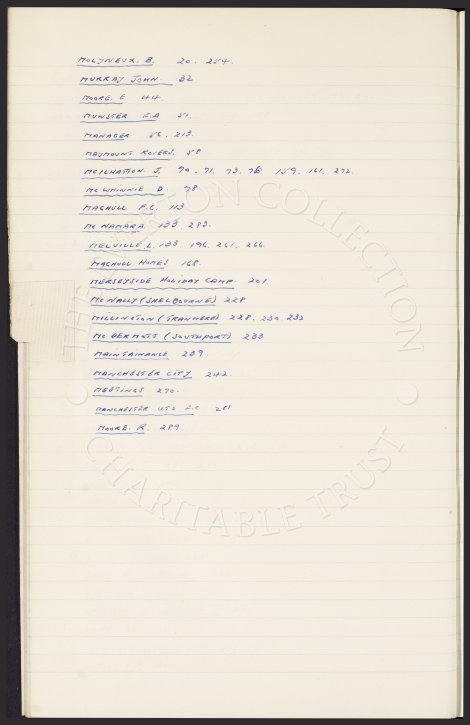 MOLYNEUX. B. 20. 254.
MURRAY JOHN. 32
MOORE. E 44.
MUNSTER F.A 51.
MANAGER 56. 213.
MAYMOUNT ROVERS. 58
MCILHATTON J. 70. 71. 73. 76 159. 161. 272.
MCWHINNIE D. 78
MAGHULL F.C. 113
MCNAMARA. 133 283.
MELVILLE. L. 133 196. 261. 266.
MAGHULL HOMES 168.
MERSEYSIDE HOLIDAY CAMP. 201.
MCNALLY (SHELBOURNE) 228
MILLINGTON (TRANMERE) 228. 230. 232
MCDERMOTT (SOUTHPORT) 233
MAINTAINANCE 239.
MANCHESTER CITY 242.
MEETINGS 270.
MANCHESTER UTD F.C 281
MOORE. R. 289.
COLLECTION
CHARITABLE TRUST